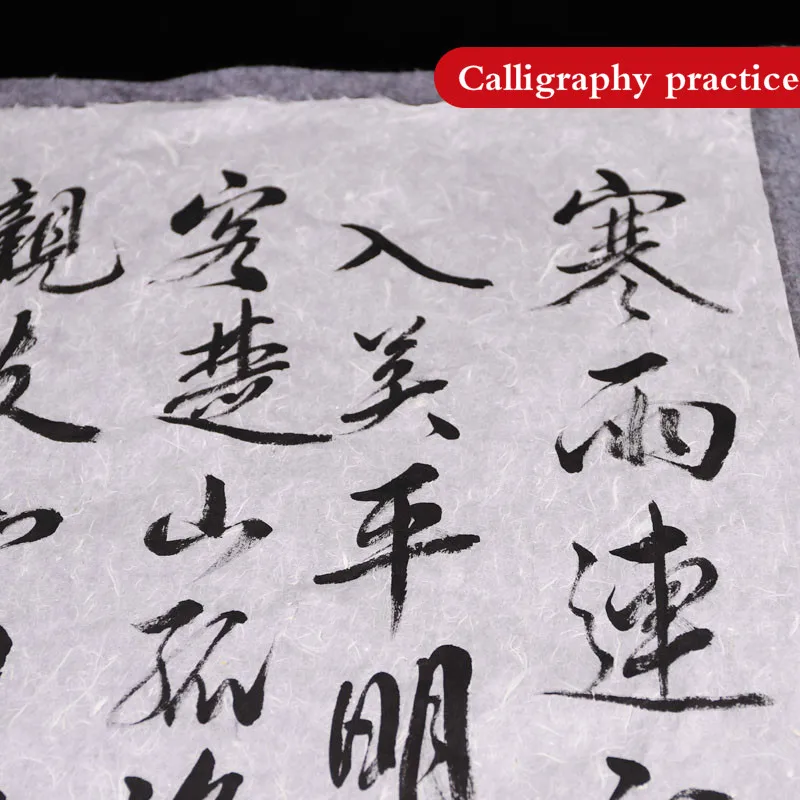 Calligraphy practice
寒雨連
入吴平明
客楚山孤
親友